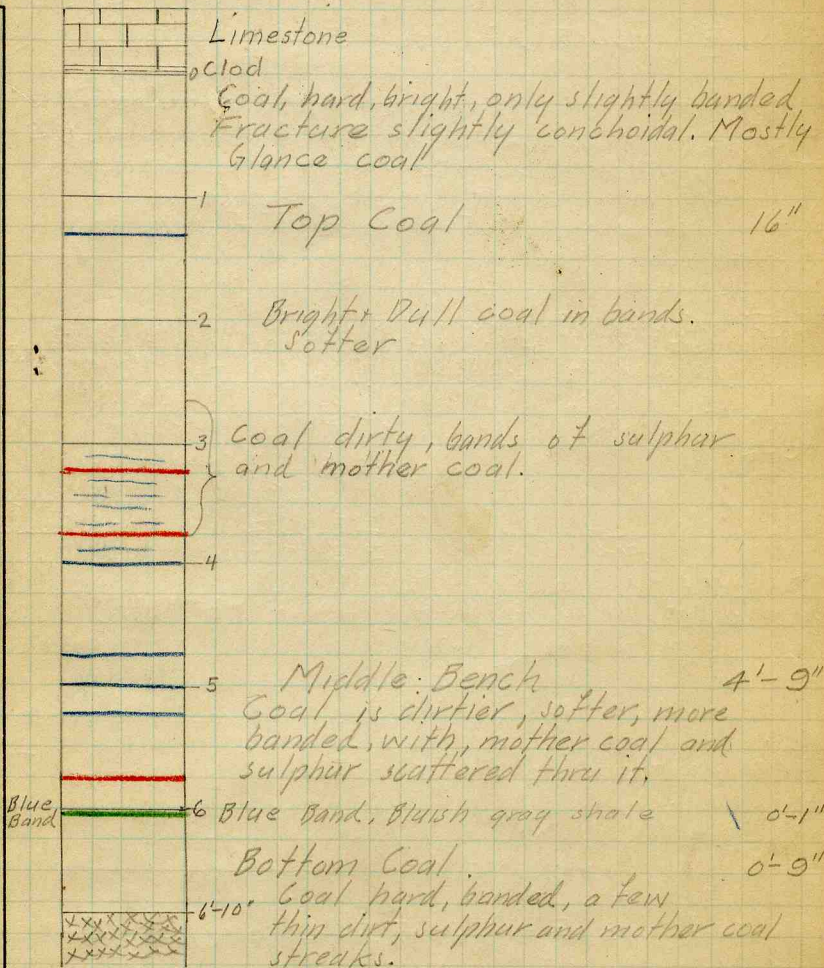 Limestone
0 Clod
Coal, hard, bright, only slightly banded
Fracture slightly conchoidal. Mostly
Glance coal
1
Top Coal 16"
2
Bright + Dull coal in bands.
Softer
3
Coal dirty, bands of sulphur
and mother coal.
4
5
Middle Bench 4'-9"
Coal is dirtier, softer, more
banded, with, mother coal and
sulphur scattered thru it.
Blue
Band
6 Blue Band, Bluish gray shale 0'-1"
Bottom Coal 0'-9"
6'-10"
Coal hard, banded, a few
thin dirt, sulphur and mother coal
streaks.